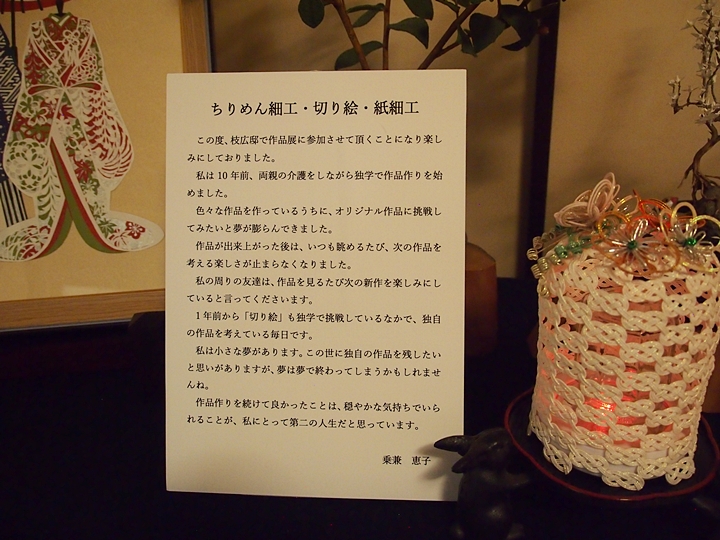 ちりめん細工・切り絵・紙細工
この度、枝広邸で作品展に参加させて頂くことになり楽し
みにしておりました。
私は 10 年前、両親の介護をしながら独学で作品作りを始
めました。
色々な作品を作っているうちに、オリジナル作品に挑戦し
てみたいと夢が膨らんできました。
作品が出来上がった後は、いつも眺めるたび、次の作品を
考える楽しさが止まらなくなりました。
私の周りの友達は、作品を見るたび次の新作を楽しみにし
ていると言ってくださいます。
１年前から「切り絵」も独学で挑戦しているなかで、独自
の作品を考えている毎日です。
私は小さな夢があります。この世に独自の作品を残したい
と思いがありますが、夢は夢で終わってしまうかもしれませ
んね。
作品作りを続けて良かったことは、穏やかな気持ちでいら
れることが、私にとって第二の人生だと思っています。
乗兼　恵子